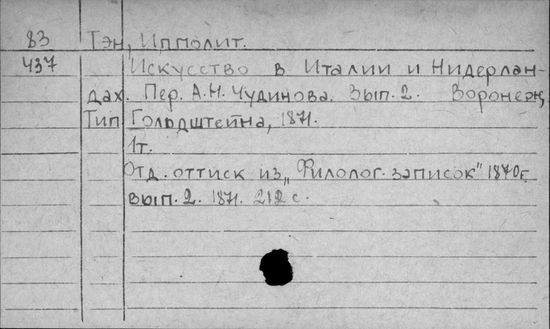 83 Тэн, Ипполит.
437 Искусство в Италии и Нидерлан-
дах. Пер. А.Н. Чудинова. Вып. 2. Воронеж,
Тип Гольдштейна, 1871.
1т.
Отд. оттиск из „Филолог. записок" 1870г.
вып. 2. 1871. 212 с.